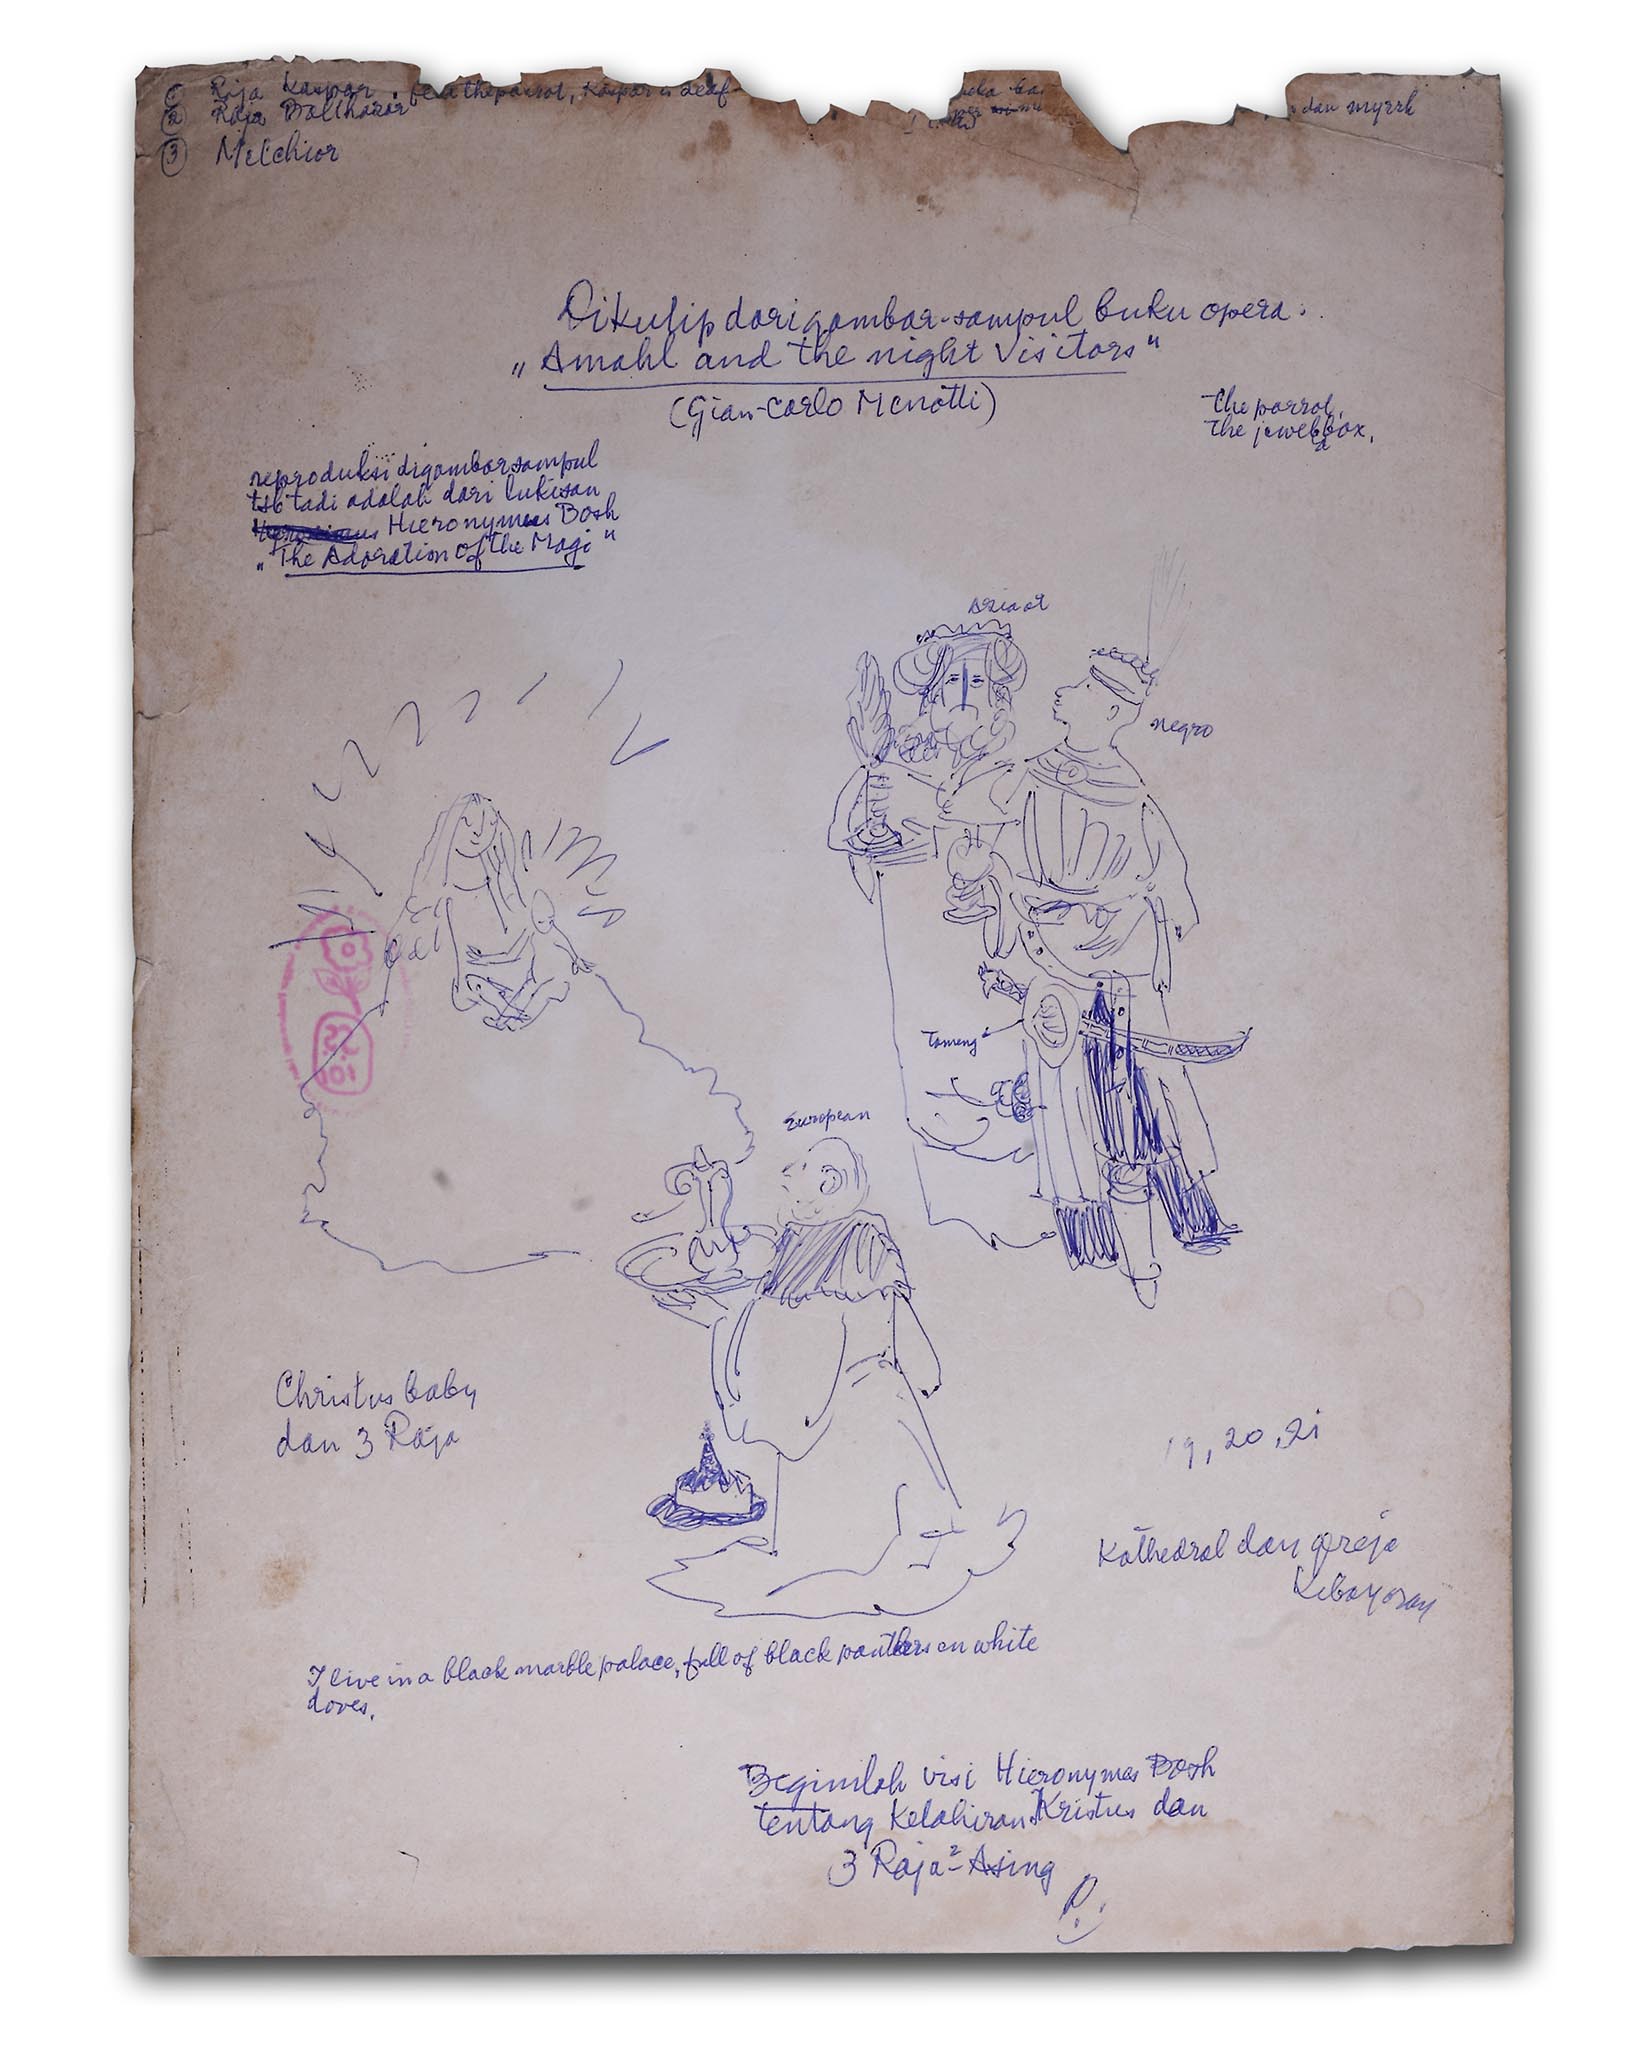 ① Raja Kaspar. the parrot, Kaspar is deaf
② Raja Balthazar
③ Melchior
dan myrrh
Dikutip dari gambar-sampul buku opera:
„Amahl and the night Visitors"
(Gian-Carlo Menotti)
the parrot,
the jewel box,
reproduksi digambar sampul
tsb tadi adalah dari lukisan
Hieronymus Bosh
„The Adoration of the Magi"
negro
Tameng
European
Christus baby
dan 3 Raja
19, 20, 21
Kathedral dan greja
Kebayoran
I live in a black marble palace, full of black panthers en white
doves.
Beginilah visi Hieronymus Bosh
tentang Kelahiran Kristus dan
3 Raja²-Asing